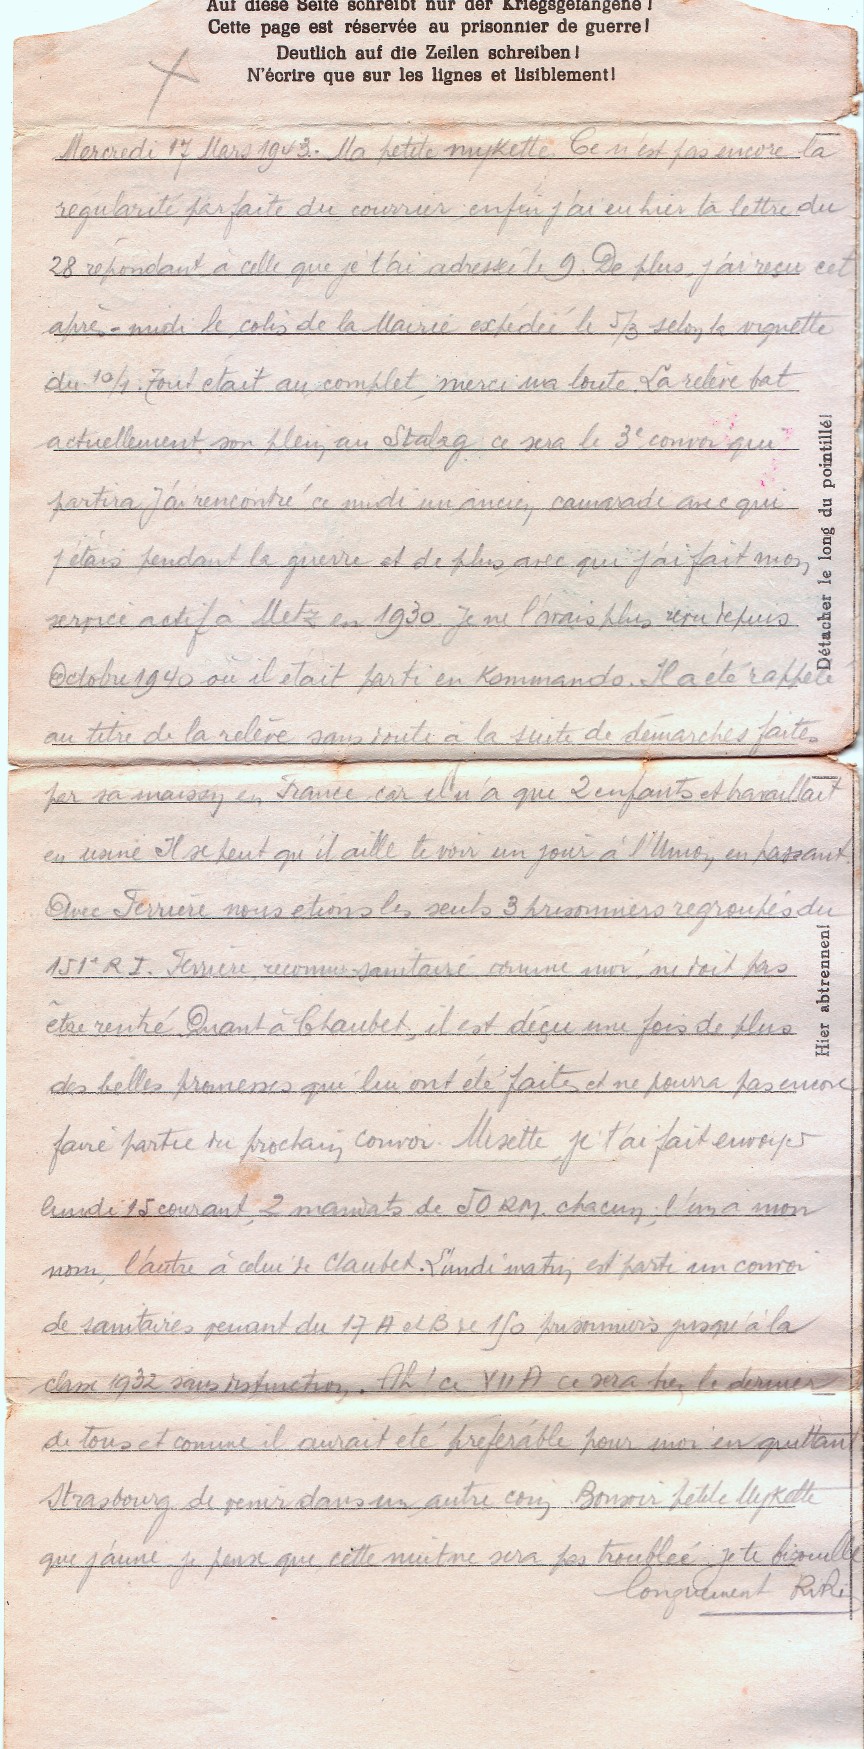 Auf diese Seite schreibt nur der Kriegsgefangene!
Cette page est réservée au prisonnier de guerre!
Deutlich auf die Zeilen schreiben!
N'écrire que sur les lignes et lisiblement!
Mercredi 17 Mars 1943. Ma petite mykette Ce n'est pas encore la
regularité parfaite du courrier enfin j'ai eu hier ta lettre du
28 répondant à celle que je t'ai adressée le 9. De plus, j'ai reçu cet
après-midi le colis de la Mairie expédié le 5/3 selon la vignette
du 10/1. Tout était au complet, merci ma loute. La relève bat
actuellement son plein au Stalag ce sera le 3e convoi qui
partira J'ai rencontré ce midi un ancien camarade avec qui
j'étais pendant la guerre et de plus avec qui j'ai fait mon
service actif à Metz en 1930 Je ne l'avais plus revu depuis
Octobre 1940 où il était parti en Kommando. Il a été rappelé
au titre de la relève sans doute à la suite de démarches faites
par sa maison en France car il n'a que 2 enfants et travaillait
en usine Il se peut qu'il aille te voir un jour à l'Union en passant.
Avec Ferrière nous etions les seuls 3 prisonniers regroupés du
151e R I. Ferrière, reconnu sanitaire comme moi ne doit pas
être rentré. Quant à Chaubet, il est déçu une fois de plus
des belles promesses qui lui ont été faites et ne pourra pas encore
faire partie du prochain convoi. Misette je t'ai fait envoyer
lundi 15 courant, 2 mandats de 50 RM. chacun, l'un à mon
nom, l'autre à celui de Claubet. Lundi matin est parti un convoi
de sanitaires venant du 17 A et B de 150 prisonniers jusqu'à la
classe 1932 sans distinction. Ah! ce VII A ce sera bien le dernier
de tous et comme il aurait été préférable pour moi en quittant
Strasbourg de venir dans un autre coin Bonsoir petite Mykette
que j'aime je pense que cette nuit ne sera pas troublée je te bizouille
longuement RiRi
Détacher le long du pointillé!
Hier abtrennen!